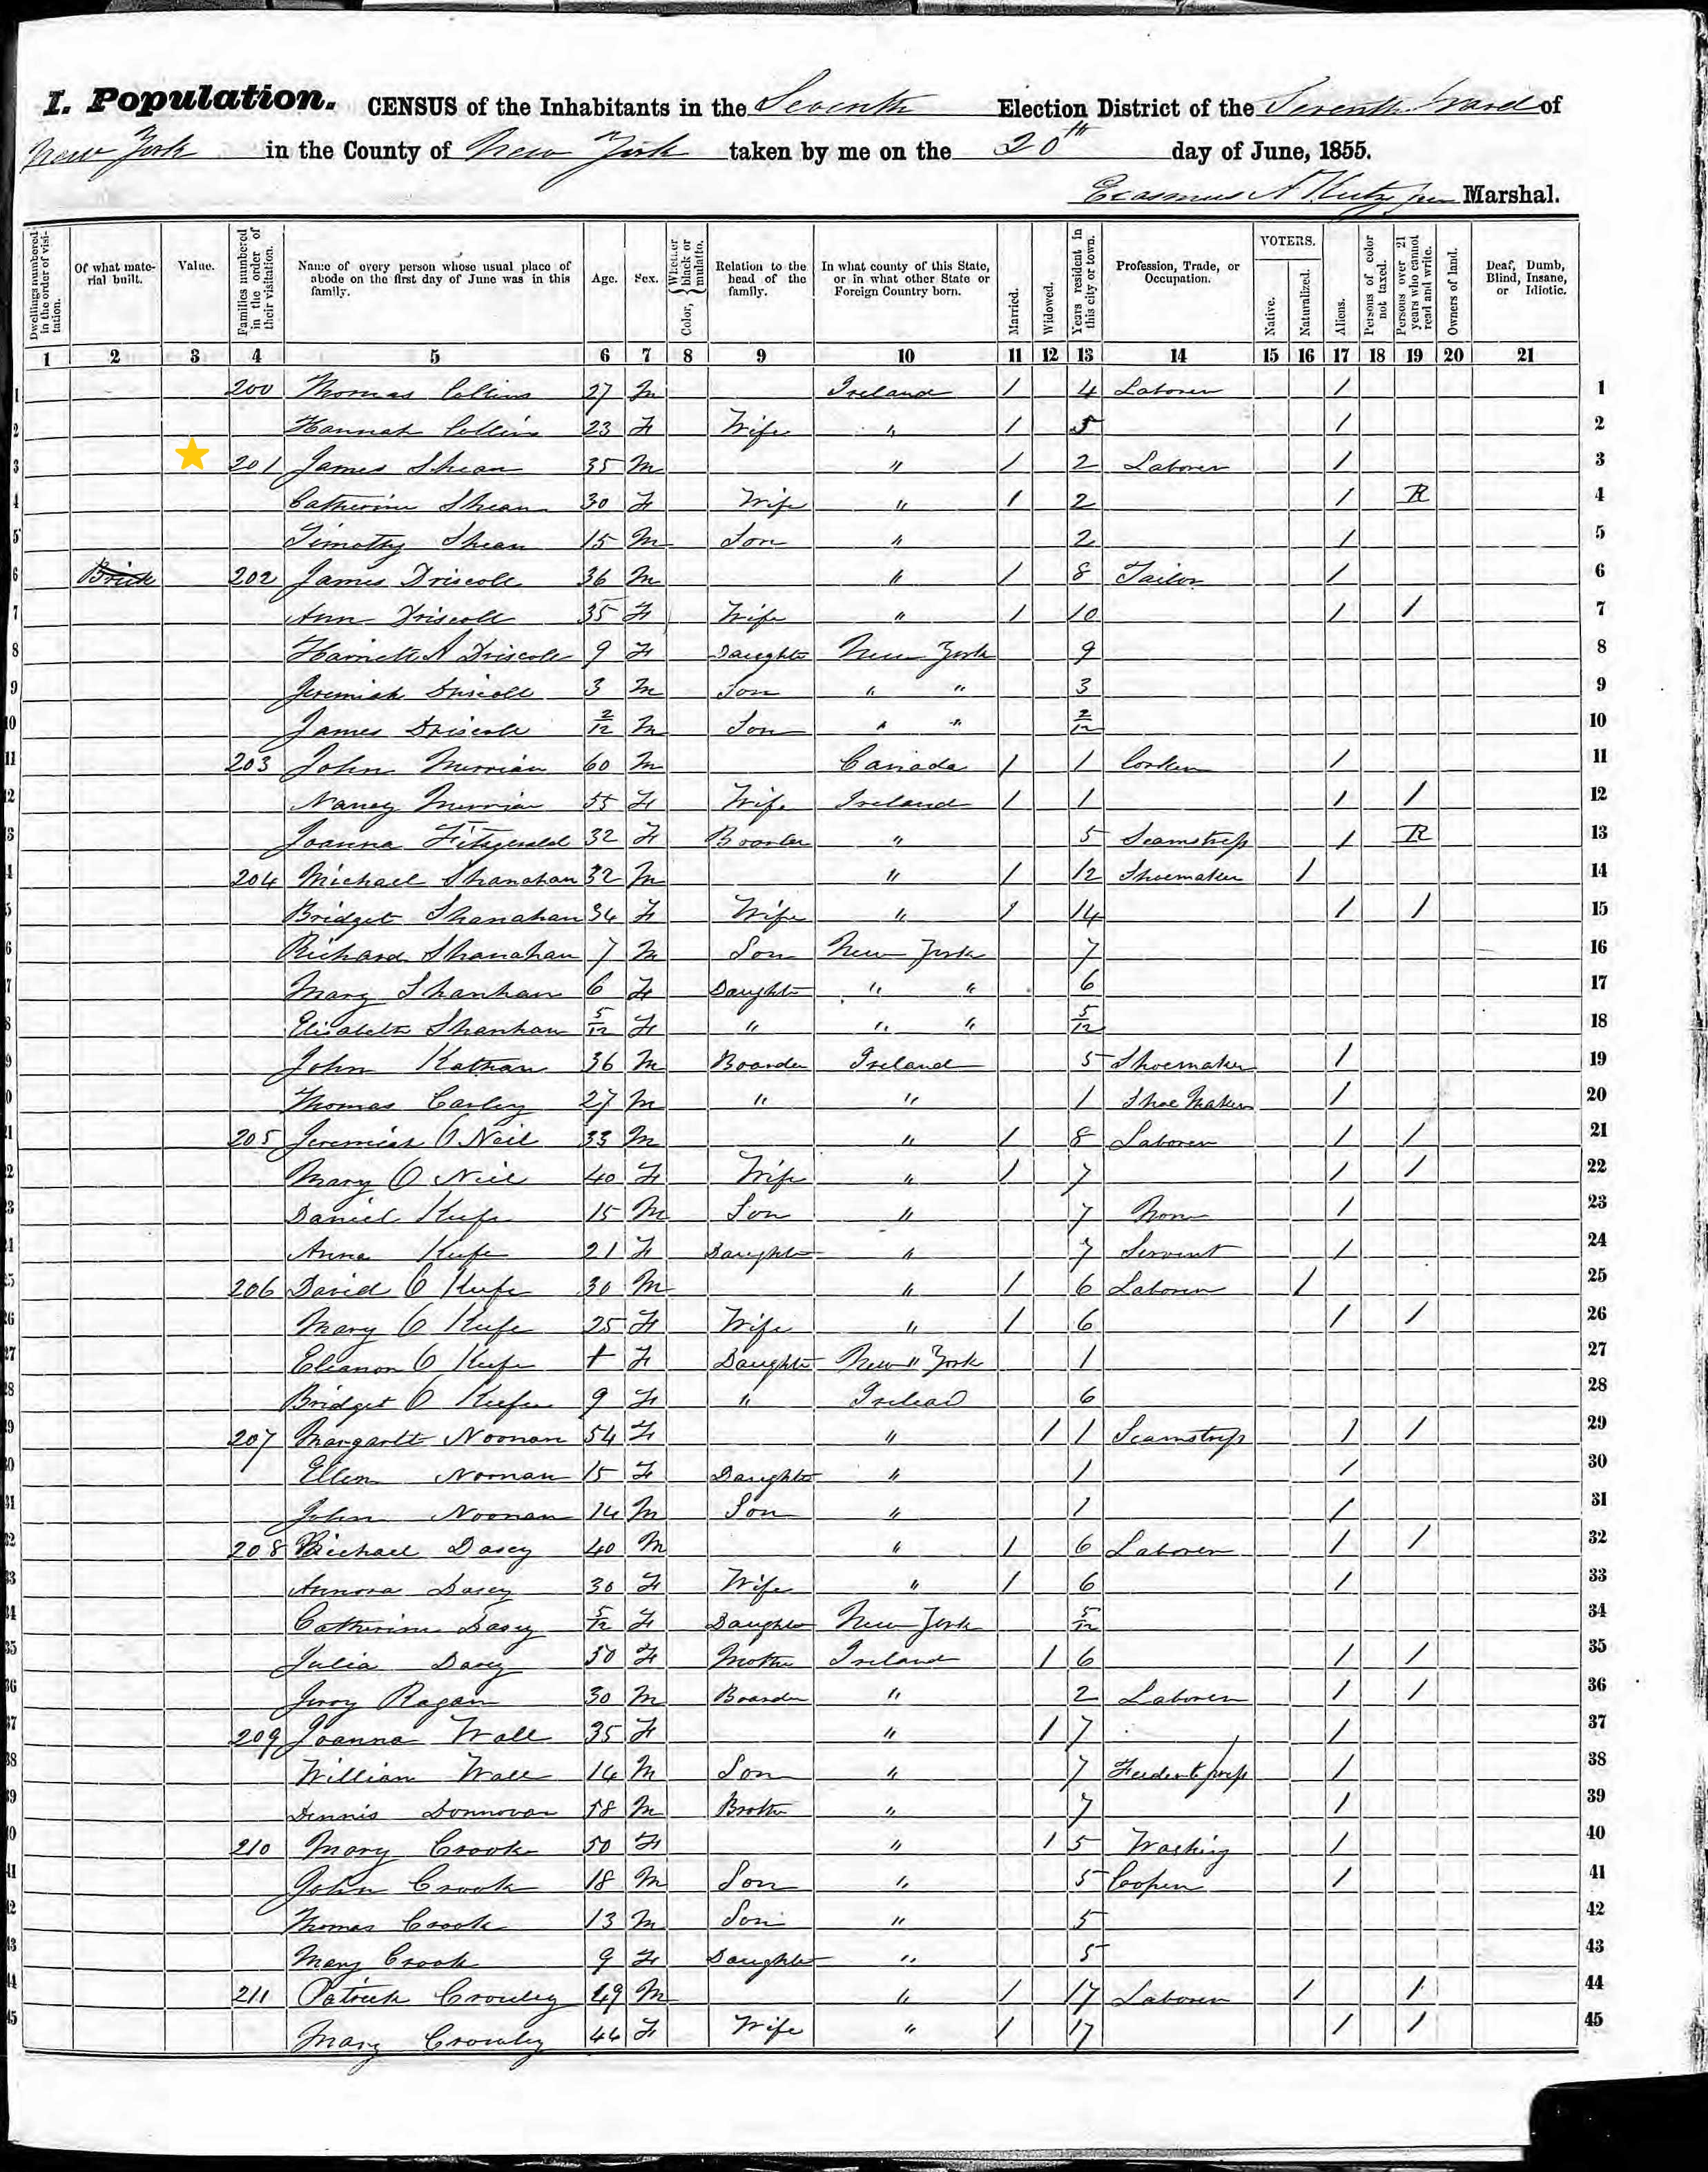 I. Population. CENSUS of the Inhabitants in the Seventh Election District of the Seventh Ward of
New York in the County of New York taken by me on the 20th day of June, 1855.
Erasmus A Marshal.
Dwellings numbered in the order of visitation. Of what material built. Value. Families numbered in the order of their visitation. Name of every person whose usual place of abode on the first day of June was in this family. Age. Sex. Color, Whether black or mulatto. Relation to the head of the family. In what county of this State, or in what other State or Foreign Country born. Married. Widowed. Years resident in this city or town. Profession, Trade, or Occupation. VOTERS. Native. Naturalized. Aliens. Persons of color not taxed. Persons over 21 years who cannot read and write. Owners of land. Deaf, Dumb, Blind, Insane, or Idiotic.
1 2 3 4 5 6 7 8 9 10 11 12 13 14 15 16 17 18 19 20 21
1 200 Thomas Collins 27 M Ireland / 4 Laborer / 1
2 Hannah Collins 23 F Wife " / 5 / 2
3 201 James Shean 35 M " / 2 Laborer / 3
4 Catherine Shean 30 F Wife " / 2 / R 4
5 Timothy Shean 15 M Son " 2 / 5
6 Brick 202 James Driscoll 36 M " / 8 Tailor / 6
7 Ann Driscoll 35 F Wife " / 10 / / 7
8 Harriett A Driscole 9 F Daughter New York 9 8
9 Jeremiah Driscoll 3 M Son " " 3 9
10 James Driscole 2/12 M Son " " 2/12 10
11 203 John 60 M Canada / 1 / 11
12 Nancy 55 F Wife Ireland / 1 / / 12
13 Joanna Fitzgerald 32 F Boarder " 5 Seamstress / R 13
14 204 Michael Shanahan 32 M " / 12 Shoemaker / 14
15 Bridget Shanahan 34 F Wife " / 14 / / 15
16 Richard Shanahan 7 M Son New York 7 16
17 Mary Shanhan 6 F Daughter " " 6 17
18 Elizabeth Shanhan 5/12 F " " " 5/12 18
19 John 36 M Boarder Ireland 5 Shoemaker / 19
20 Thomas Carley 27 M " " 1 Shoe Maker / 20
21 205 Jeremiah O Neil 33 M " / 8 Laborer / / 21
22 Mary O Neil 40 F Wife " / 7 / / 22
23 Daniel Keefe 15 M Son " 7 None / 23
24 Anna Keefe 21 F Daughter " 7 Servent / 24
25 206 David O Keefe 30 M " / 6 Laborer / 25
26 Mary O Keefe 25 F Wife " / 6 / / 26
27 Eleanor O Keefe 1 F Daughter New " York 1 27
28 Bridget O Keefe 9 F " Irelead 6 28
29 207 Margarett Noonan 54 F " / 1 Seamstress / / 29
30 Ellen Noonan 15 F Daughter " 1 / 30
31 John Noonan 14 M Son " 1 / 31
32 208 Michael Dasey 40 M " / 6 Laborer / / 32
33 Annora Dasey 30 F Wife " / 6 / 33
34 Catherine Dasey 5/12 F Daughter New York 5/12 34
35 Julia Dasey 50 F Mother Ireland / 6 / / 35
36 Jerry Ragan 30 M Boarder " 2 Laborer / / 36
37 209 Joanna Wall 35 F " / 7 / 37
38 William Wall 14 M Son " 7 / 38
39 Dennis Donnovan 58 M Brother " 7 / 39
40 210 Mary Crook 50 F " / 5 Washing / 40
41 John Crook 18 M Son " 5 Cooper / 41
42 Thomas Crook 13 M Son " 5 42
43 Mary Crook 9 F Daughter " 5 43
44 211 Patrick Crowley 49 M " / 17 Laborer / / 44
45 Mary Crowley 44 F Wife " / 17 / / 45